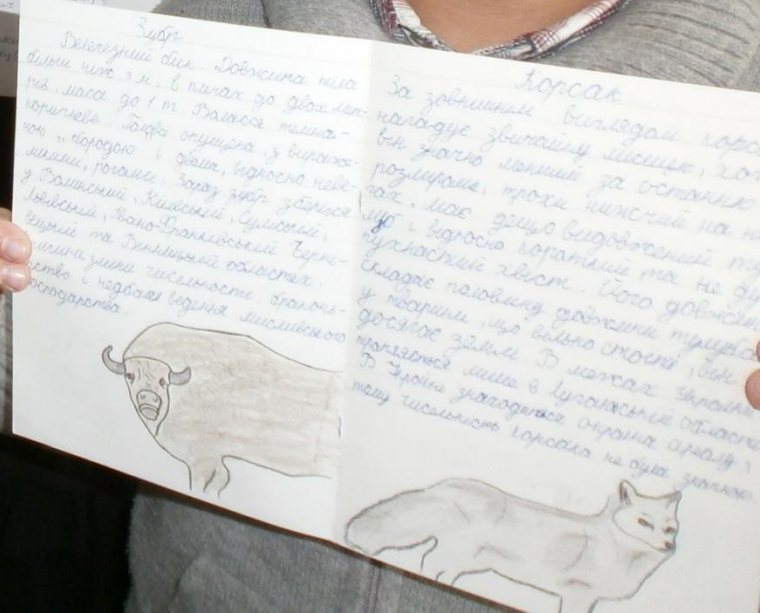 Зубр
Велечезний бик. Довжина тіла
більш ніж 3 м, в плечах до двох мет-
рів, маса до 1 т. Волосся темна-
коричневе. Голова опущена, з виразе-
ною бородою і двома, відносно неве-
ликими, рогами. Зараз зубр зберігся
у Волинській, Київській, Сумській,
Львівській, Івано-Франківський Черні-
вецький та Венницький областях.
зміни чисельности. браконь-
єрство і недбале ведення мисливського
господарства.
Корсак
За зовнишнім виглядом корса
нагадує звичайну лисицю, хоч
він значно менший за останню
розмірами, трохи нижчий на но
гах, має дещо видовжений ту
луб і відносно короткий та не ду
пухнастий хвіст. Його довжина
складає половину довжини тулуба
у тварини, що вільно стоїть, він
досягає землі. В межах України
трапляється лише в Луганській області
В Україні знаходиться окраїна ареалу і
тому чисельність корсака не була значною